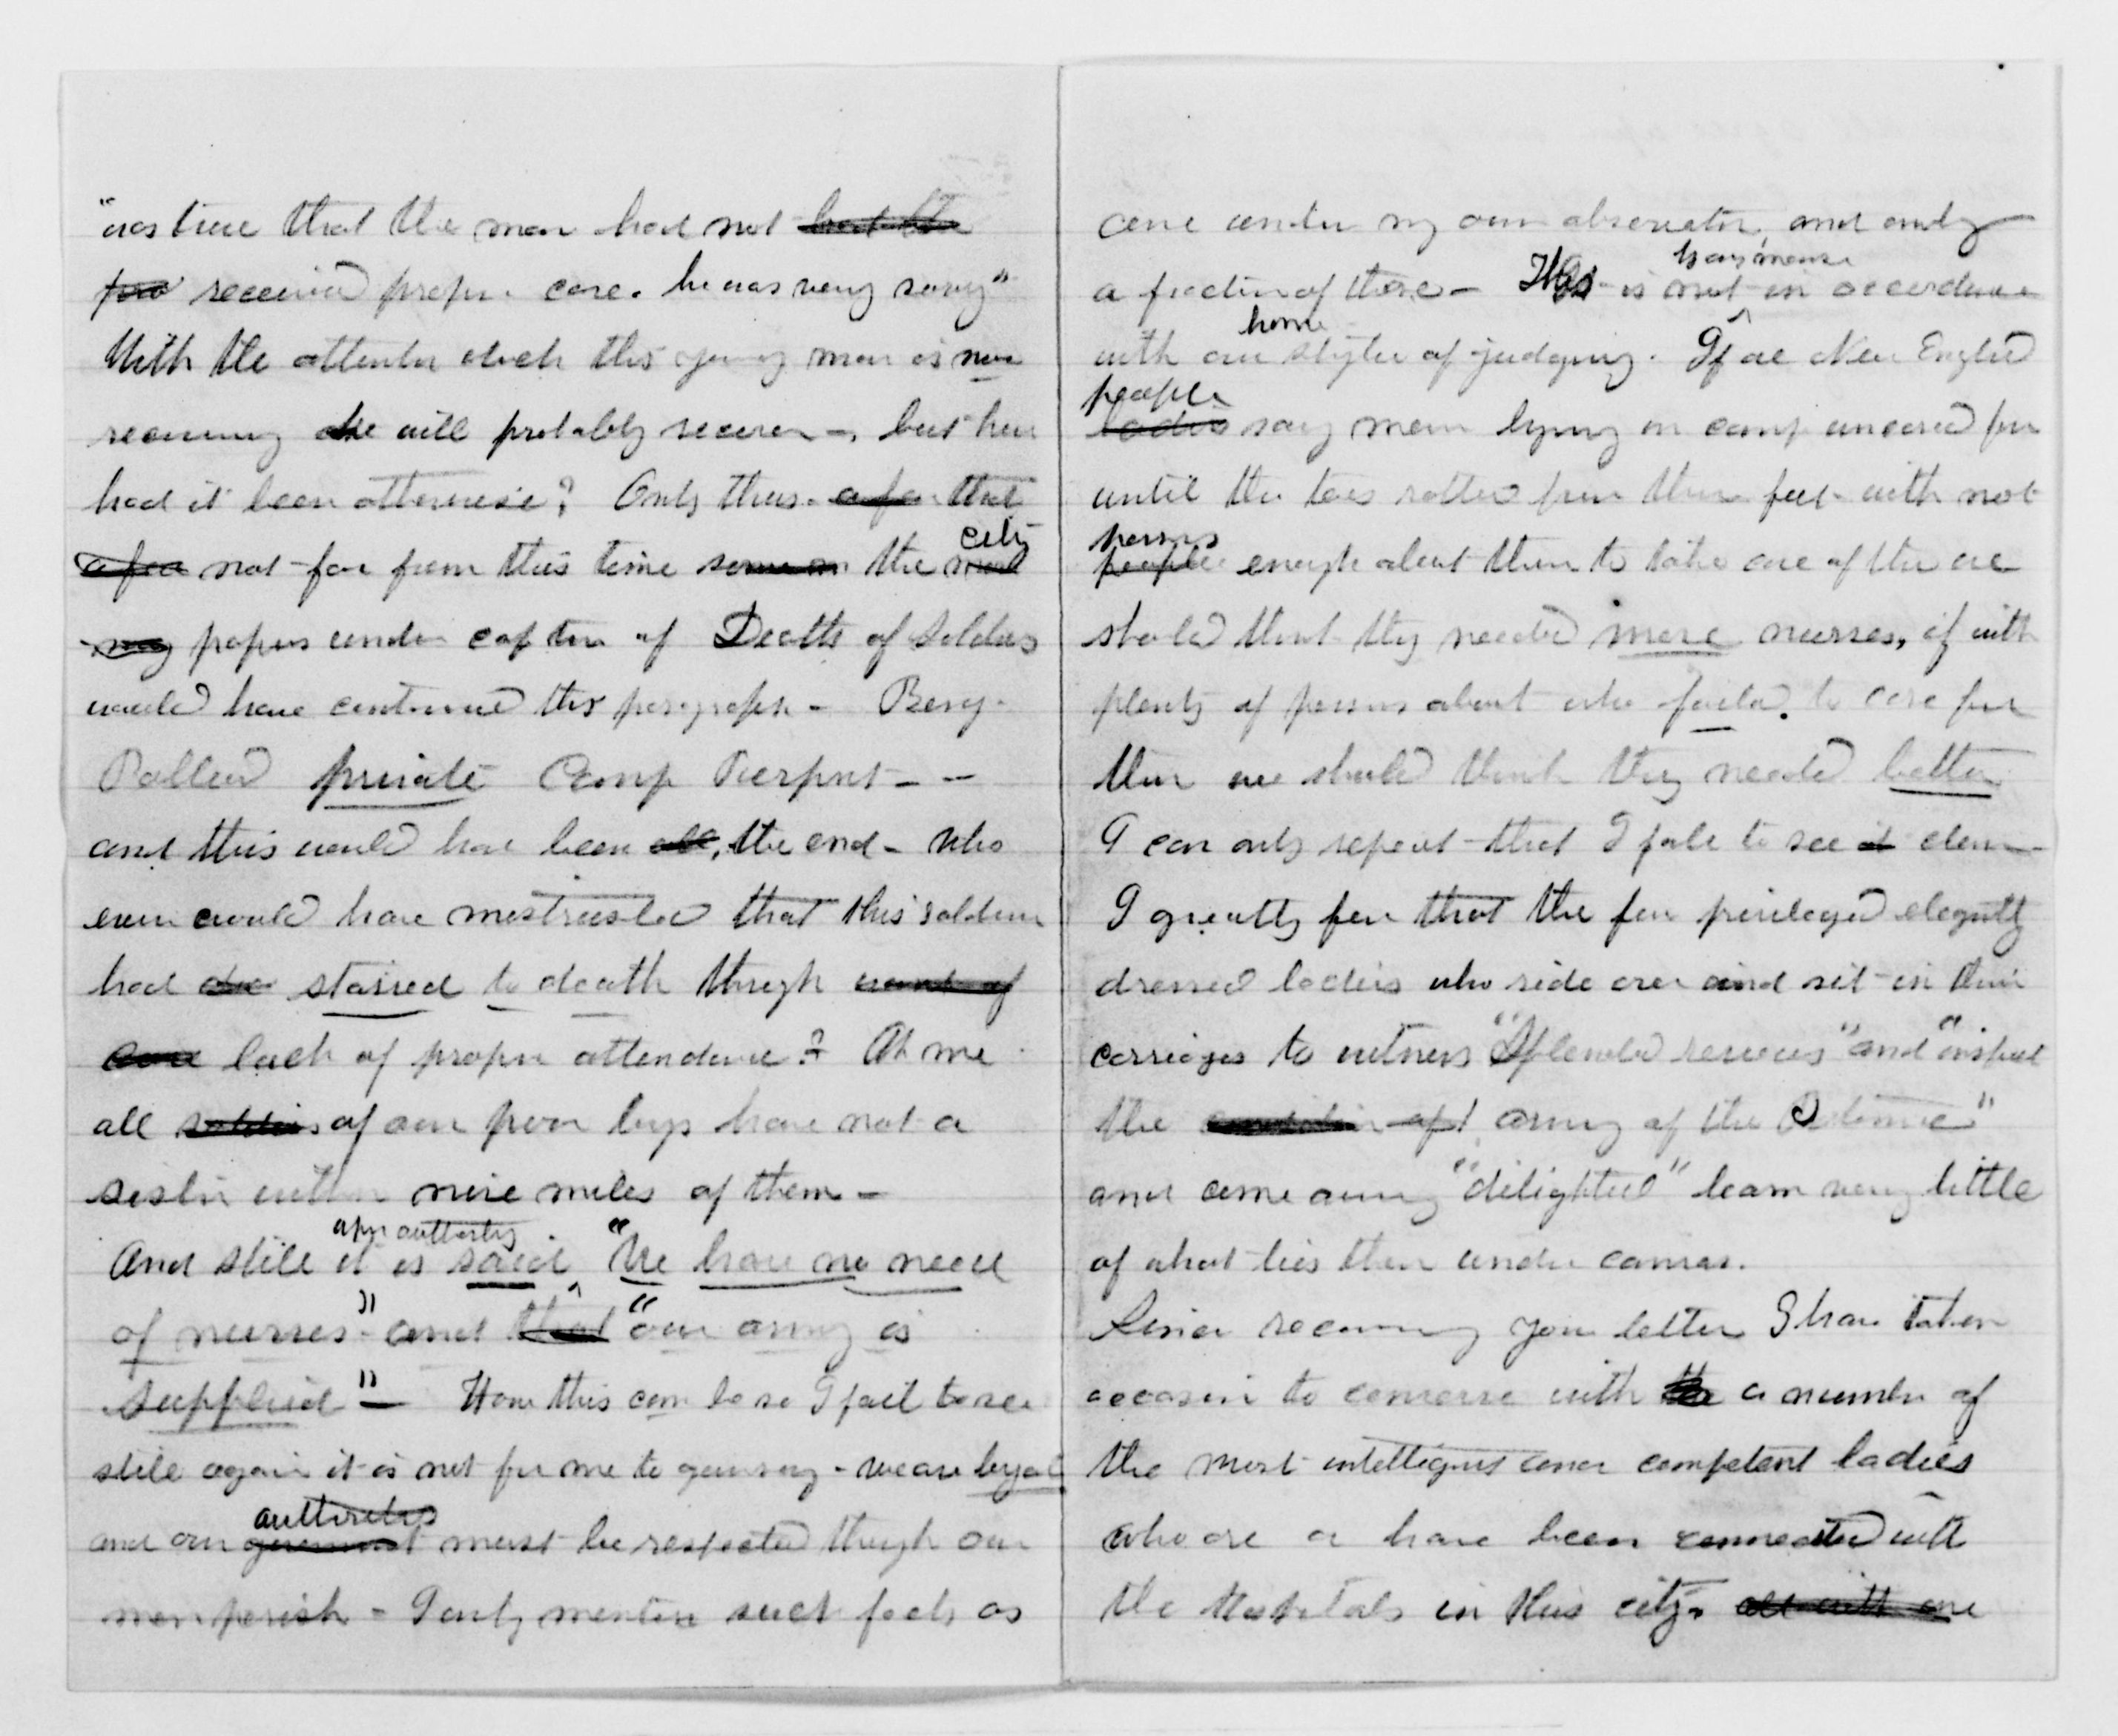 "was true that the man had not had the
pro received proper care. he was very sorry"
With the attention which this young man is now
receiving he will probably recover, but how
had it been otherwise? Only thus. a few that
a few not far from this time some on the city
papers under caption of Deaths of Soldiers
would have contained this paragraph - Benj.
Pollard private Camp Pierpont - -
and this would have been all, the end - who
ever would have mistrusted that this soldier
had starved to death through want of
care lack of proper attendance? Ah me
all soldiers of our poor boys have not a
sister within nine miles of them -
upon authority
And still it is said "We have no need
of nurses" and that "our army is
supplied" - How this can be so I fail to see
still again it is not for me to gainsay - we are loyal
authorities
and our government must be respected though our
men perish - I only mention such facts as
come under my own observation, and only
a fraction of those - This is not by any means in accordance
home
with our style of judging. If we New England
people
ladies saw men lying in camp uncared for
until their toes rotted from their feet with not
persons
people enough about them to take care of them we
should think they needed more nurses, if with
plenty of persons about who failed to care for
them we should think they needed better
I can only repeat that I fail to see it clear
I greatly fear that the few privileged elegantly
dressed ladies who ride over and sit in their
carriages to witness "Splendid reviews" and "inspect
the condition of army of the Potomac"
and come away "delighted" learn very little
of what lies there under canvas.
Since receiving your letter I have taken
occasion to converse with the a number of
the most intelligent and competent ladies
who are or have been connected with
the Hospitals in this city. all with one